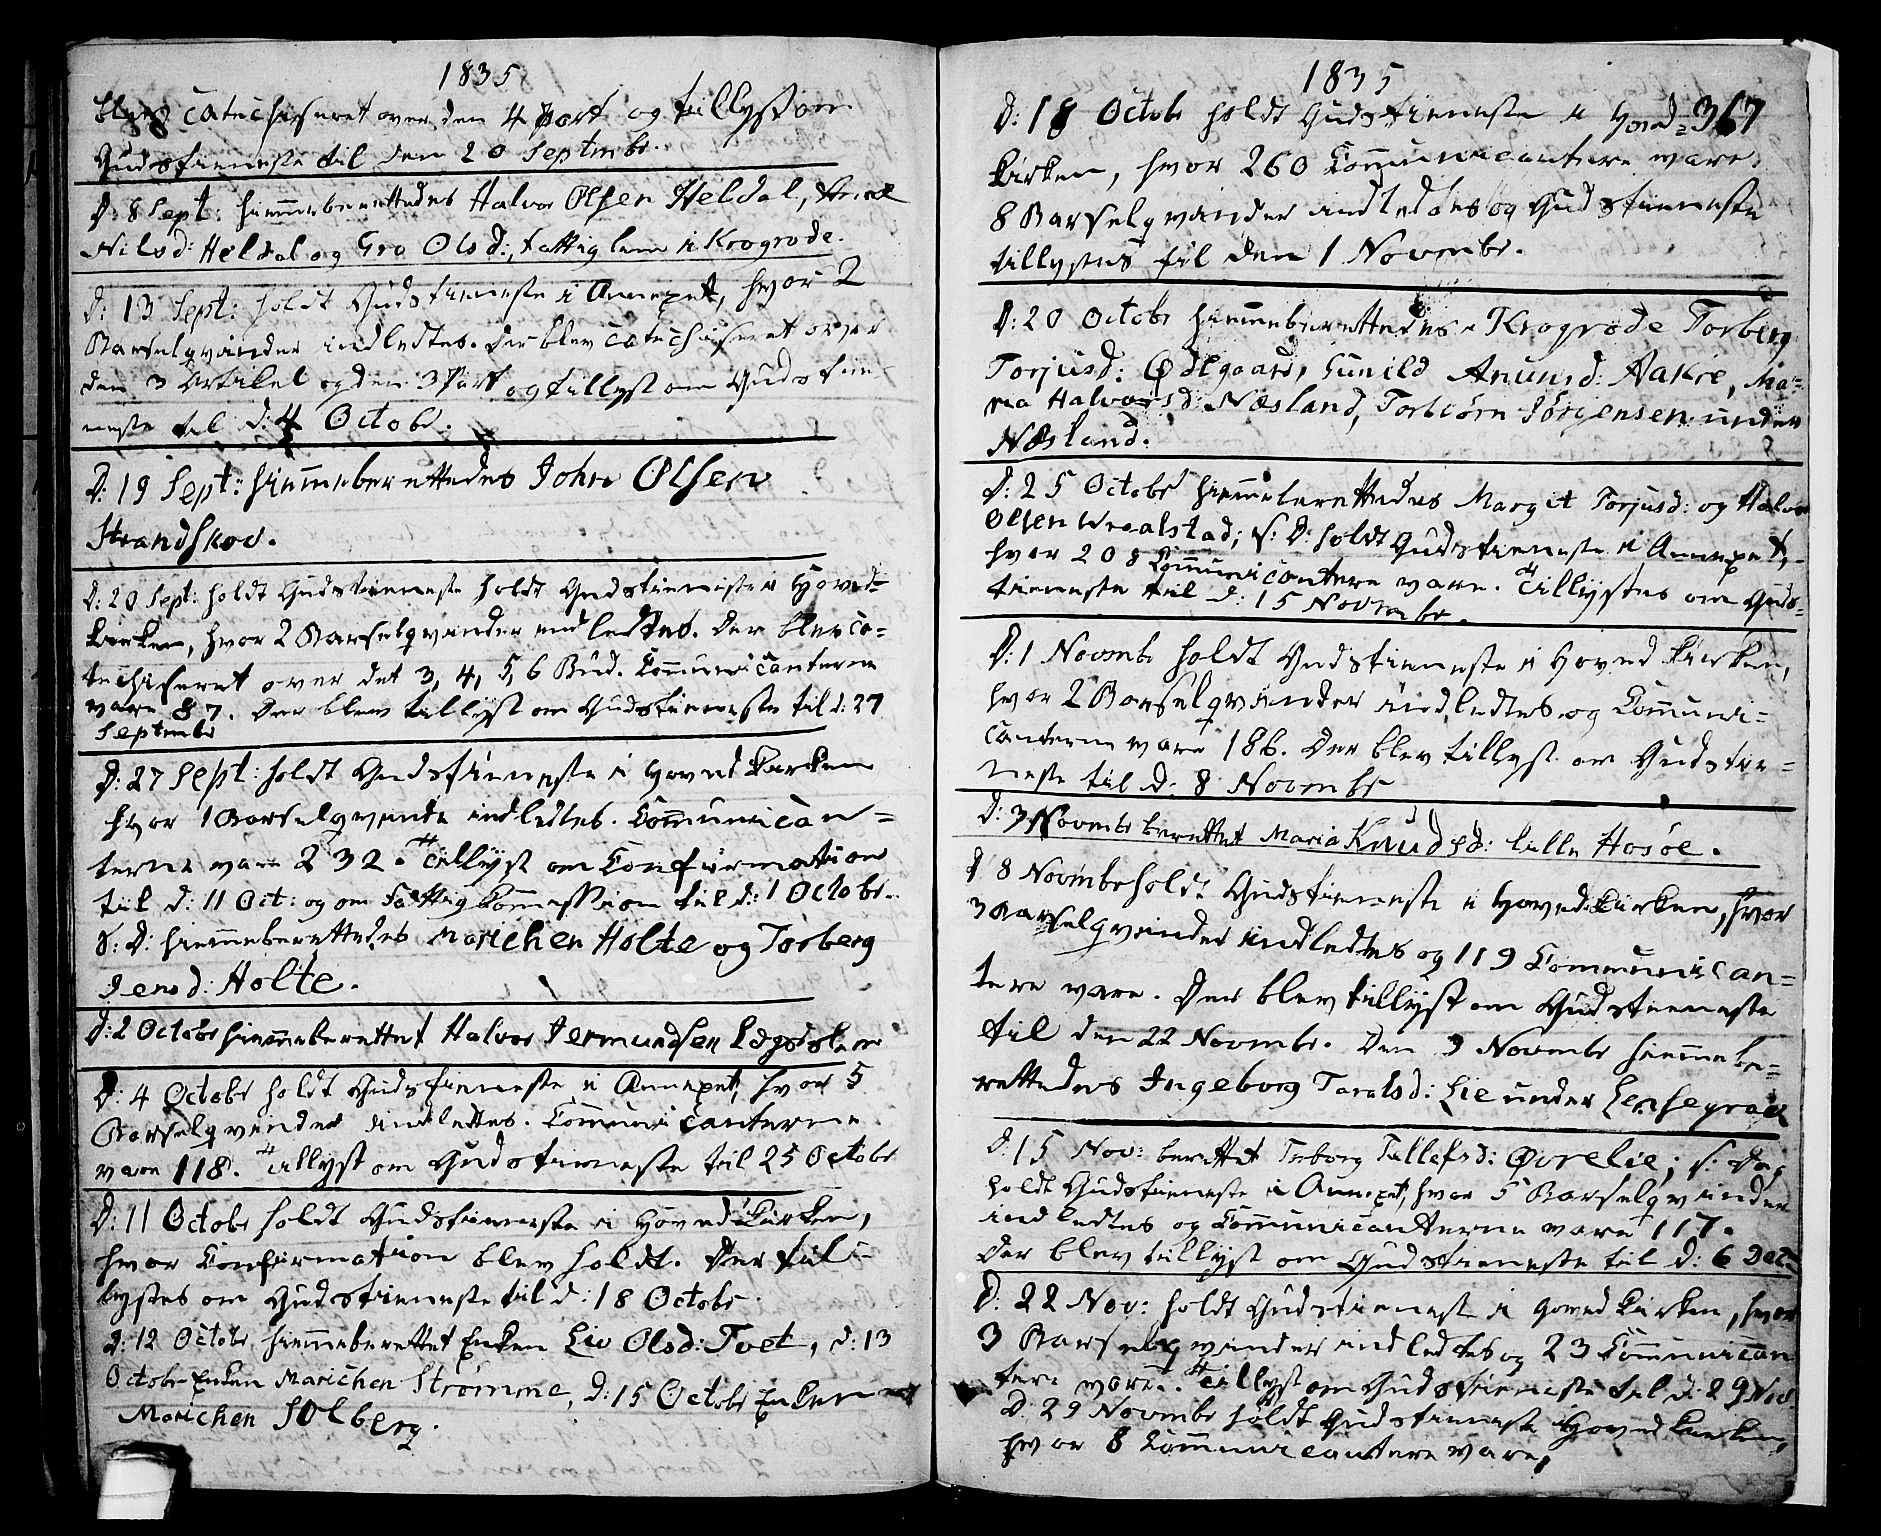 1835
blev catechiseret over den 4 Part og tillyst om
Gudstieneste til den 20 Septembr.
D: 8 Sept: hiemmeberettedes Halvor Olsen Heldal,
Nilsd: Heldal og Gro Olsd:, fattiglem i Krogrode.
D: 13 Sept: holdt Gudstieneste i Annexet, hvor 2
Barselqvinder indledtes. Der blev catechiseret over
den 3 Artikel og den 3 Part og tillyst om Gudstie-
neste til d: 4 Octobr.
D: 19 Sept: hiemmeberettedes John Olsen
Strandskov.
D: 20 Sept: holdt Gudstieneste holdt Gudstieneste i Hoved-
kirken, hvor 2 Barselqvinder indledtes. Der blev ca-
techiseret over det 3, 4, 5, 6 Bud. Communicanterne
vare 87. Der blev tillyst om Gudstieneste til d: 27
Septembr
D: 27 Sept: holdt Gudstieneste i Hovedkirken
hvor 1 Barselqvinde indledtes. Communican-
terne vare 232. Tillyst om Confirmation
til d: 11 Oct: og om Fattig Commission til d: 1 Octobr.
S: D: hiemmeberettedes Marichen Holte og Torberg
Jensd: Holte.
D: 2 Octobr hiemmeberettet Halvor Jermundsen
D: 4 Octobr holdt Gudstieneste i Annexet, hvor 5
Barselqvinder indledtes. Communicanterne
vare 118. Tillyst om Gudstieneste til 25 Octobr
D: 11 Octobr holdt Gudstieneste i Hovedkirken,
hvor Confirmation blev holdt. Der til-
lystes om Gudstieneste til d: 18 Octobr.
D: 12 Octobr hiemmeberettet Enken Liv Olsd: Tvet, d: 13
Octobr Enken Marichen Strømme, d: 15 Octobr Enken
Marichen Solberg.
1835
367
D: 18 Octobr holdt Gudstieneste i Hoved-
kirken, hvor 260 Communicantere vare.
8 Barselqvinder indledtes og Gudstieneste
tillystes til den 1 Novembr.
D: 20 Octobr hiemmeberettedes i Krogrode Torberg
Torjusd: Ødegaard, Gunild Anunsd: Aakre, Ma-
ria Halvorsd: Næsland, Torbiørn Jørgensen under
Næsland.
D: 25 Octobr hiemmeberettedes Margit Torjusd: og Halvor
Olsen Wraalstad; S: D: holdt Gudstieneste i Annexet,
hvor 208 Communicantere vare. Tillystes om Guds-
tieneste til d: 15 Novembr.
D: 1 Novmbr holdt Gudstieneste i Hovedkirken,
hvor 2 Barselqvinder indledtes og Communi-
canterne vare 186. Der blev tillyst om Gudstie-
neste til d: 8 Novmbr
D: 3 Novmbr berettet Maria Knudsd: lille Hosøe.
D 8 Novmbr holdt Gudstieneste i Hovedkirken, hvor
3 Barselqvinder indledtes og 119 Communican-
tere vare. Der blev tillyst om Gudstieneste
til den 22 Novmbr. Den 9 Novmbr hiemmebe-
rettedes Ingeborg Taralsd: Lie under
D: 15 Nov: berettet Torborg Tallefsd: Øvrelie; s: Dag
holdt Gudstieneste i Annexet, hvor 5 Barselqvinder
indledtes og Communicanterne vare 117.
Der blev tillyst om Gudstieneste til d: 6 Dec:
D: 22 Nov: holdt Gudstieneste i Hovedkirken, hvor
3 Barselqvinder indledtes og 23 Communican
tere vare. Tillyst om Gudstieneste til d: 29 Nov.
D. 29 Novmbr holdt Gudstieneste i Hovedkirken,
hvor 8 Communicantere vare,